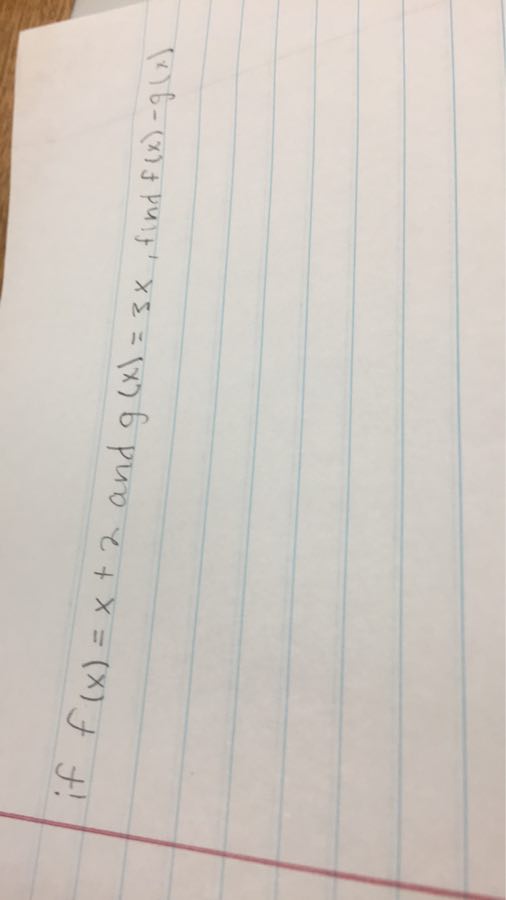 if f(x) = x + 2 and g(x) = 3x, find f(x) - g(x)